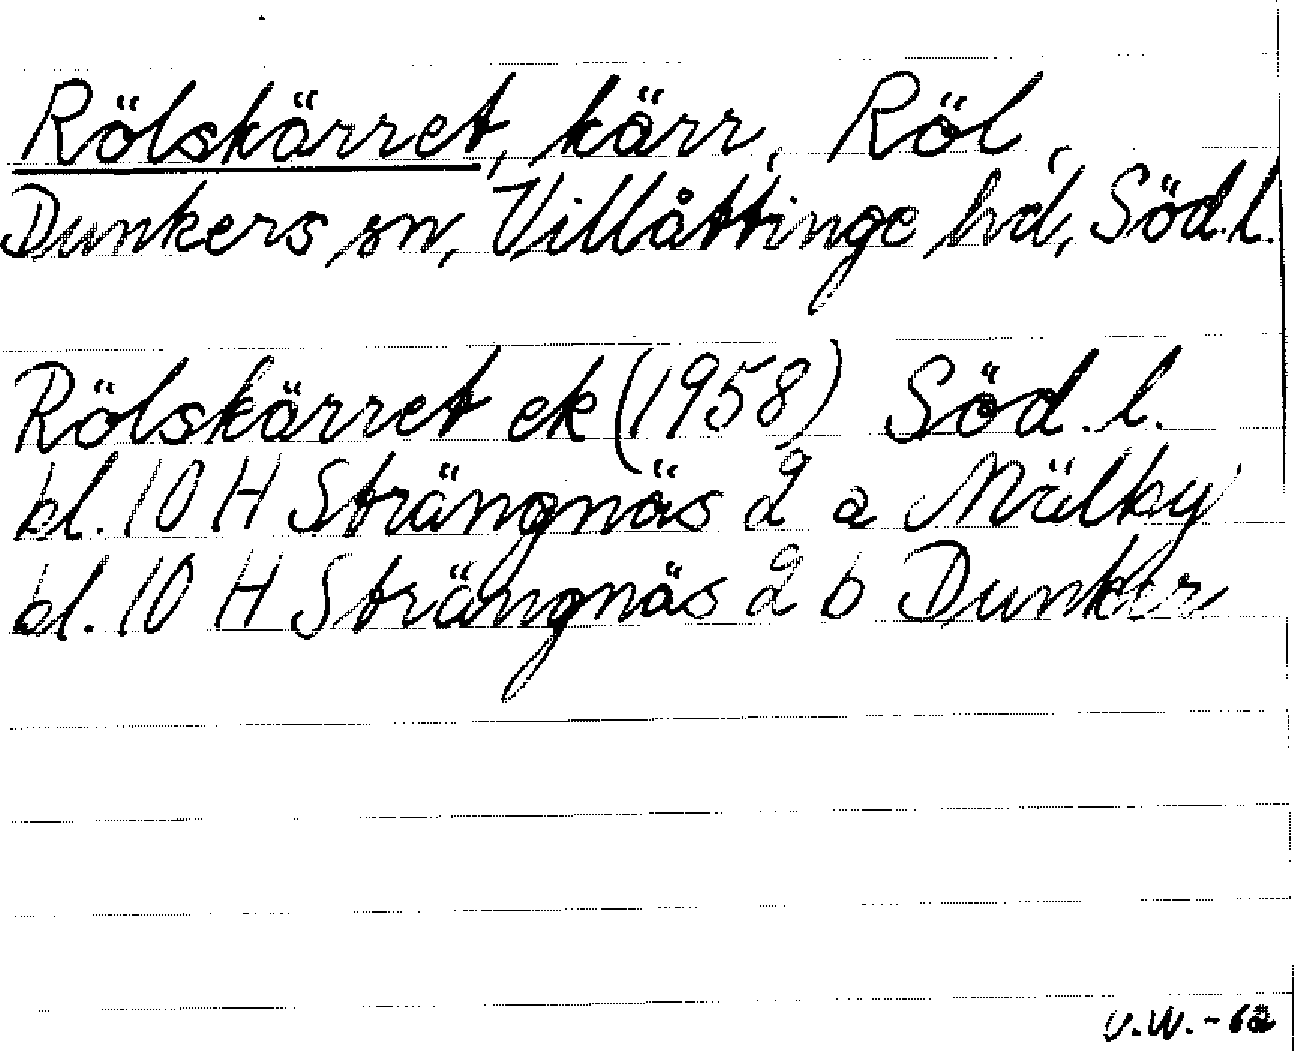 Rölskärret, kärr, Röl,
Dunkers sn, Villåttinge hd, Söd.l.
Rölskärret ek (1958) Söd.l.
bl. 10 H Strängnäs 2 a Mälby
bl. 10 H Strängnäs 2 b Dunker
V.W. -62